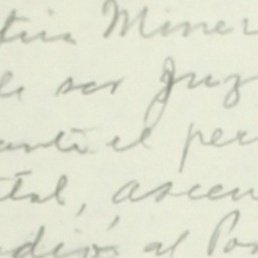 tin Miner
le ser Juz
ante el per
tal, ascen
edió al Po